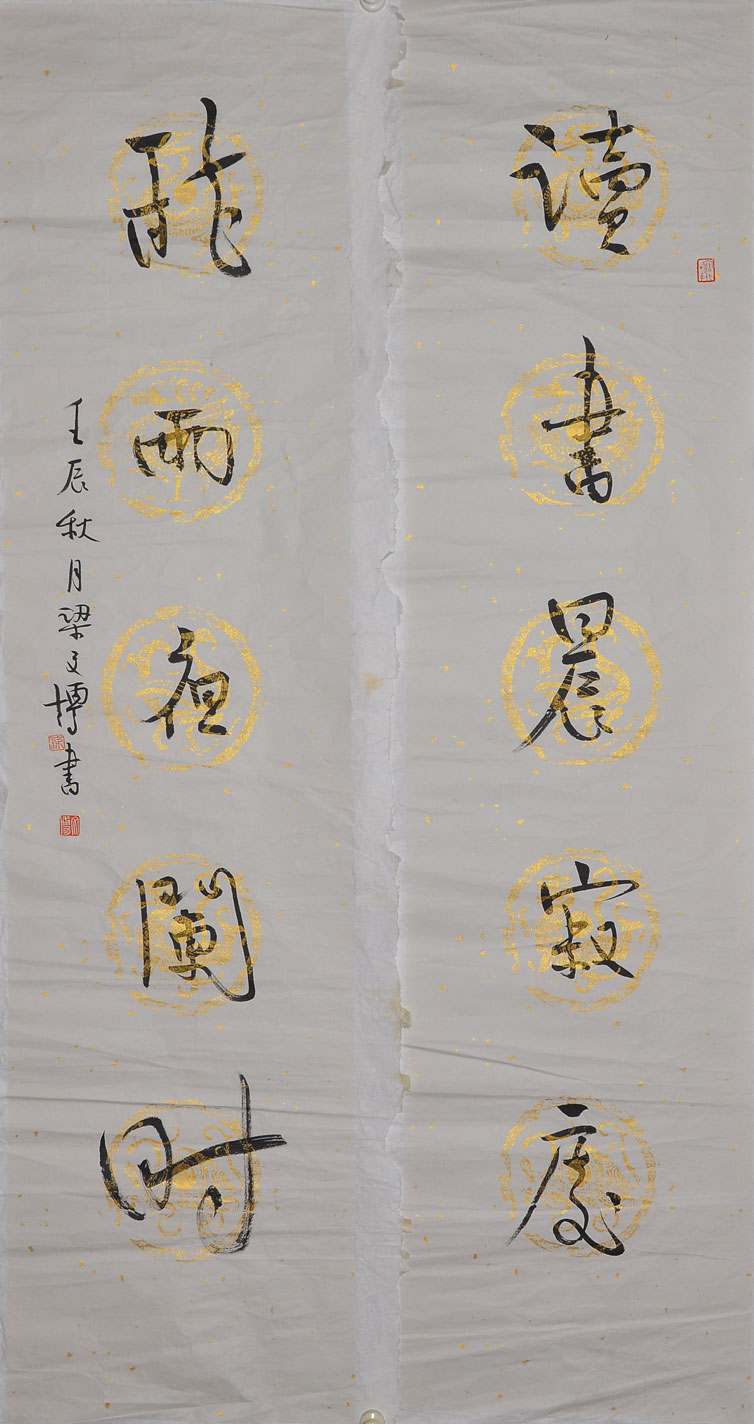 讀書晨寂處
聽雨夜闌时
壬辰秋月梁文博書